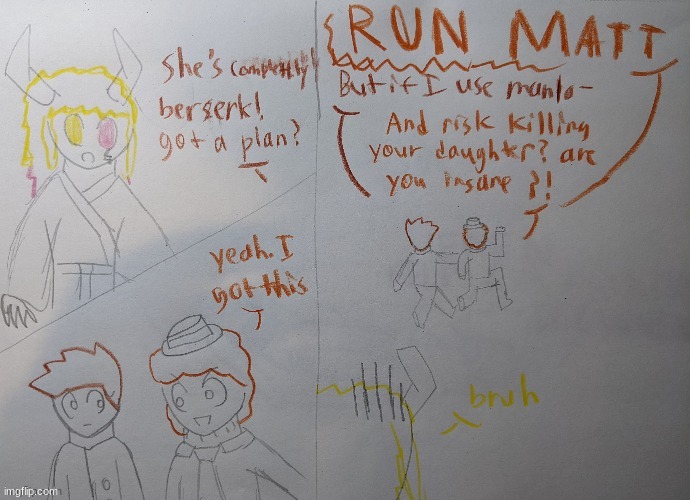 She's completely
berserk!
got a plan?
yeah. I
got this
RUN MATT
But if I use manlo-
And risk killing
your daughter? are
you insane ?!
bruh
imgflip.com